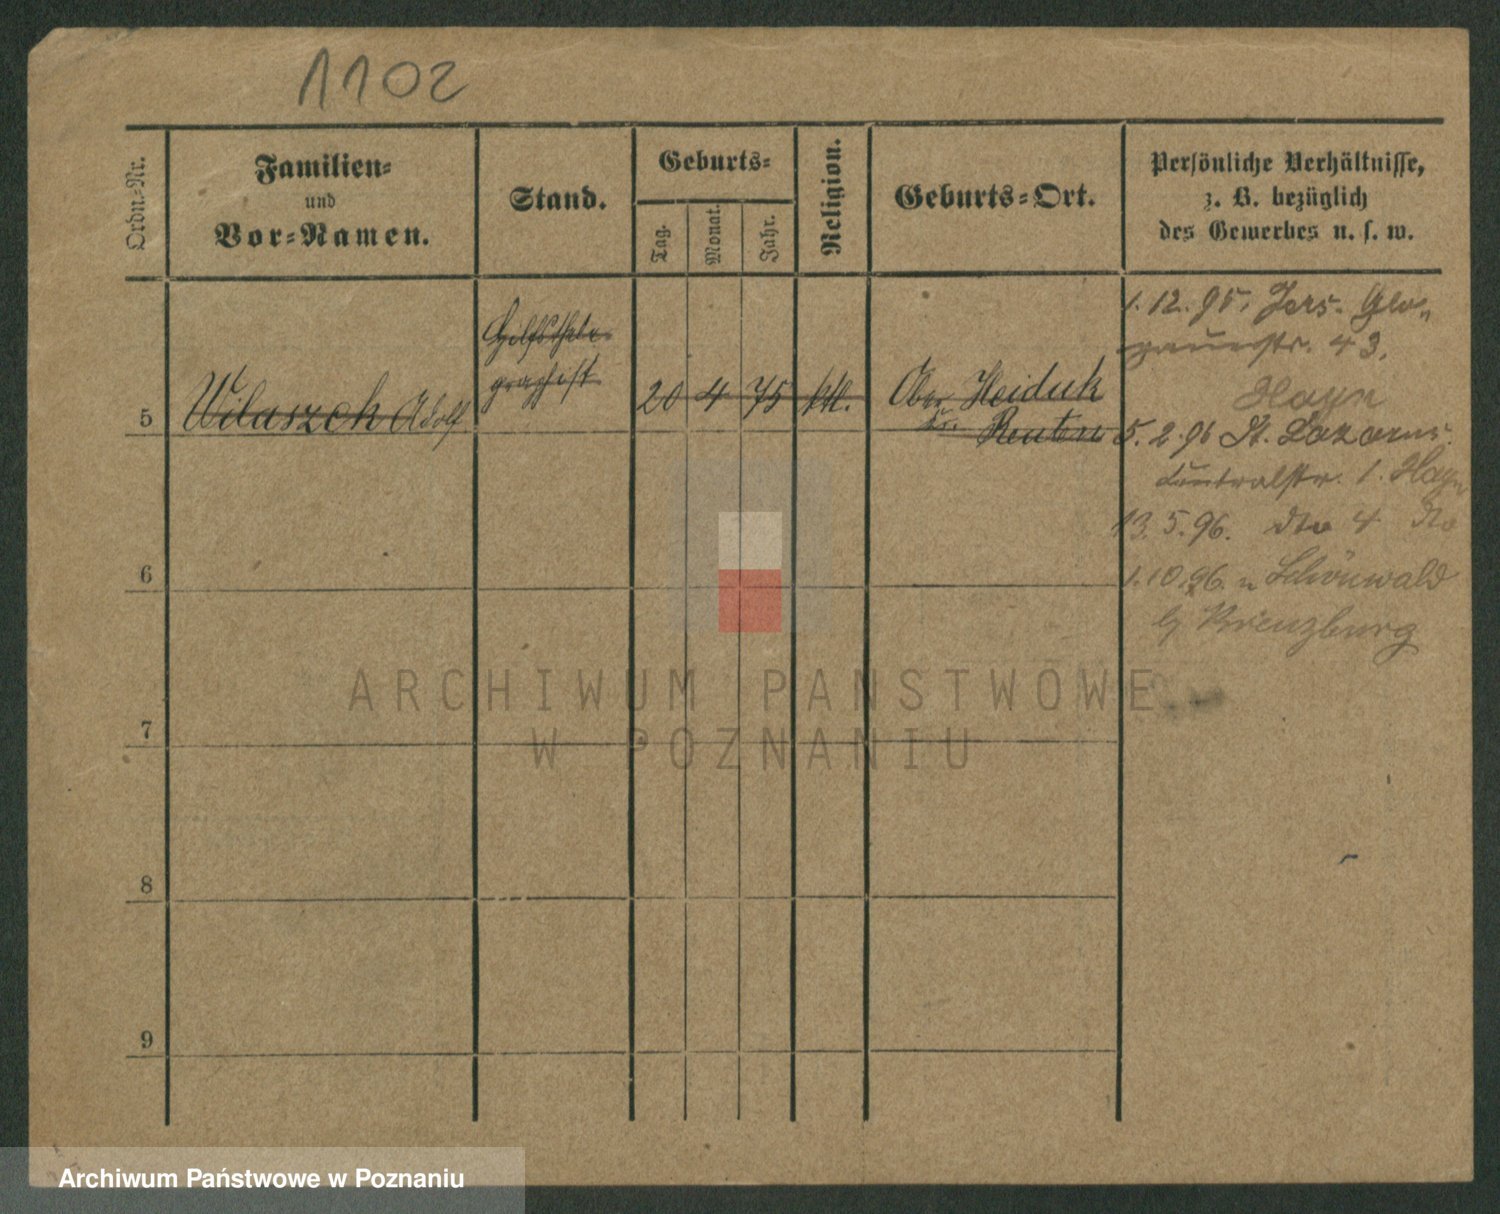 1102
Ordn.-Nr.
Familien-
und
Vor-Namen.
Stand.
Geburts-
Tag.
Monat.
Jahr.
Religion.
Geburts-Ort.
Persönliche Verhältnisse,
z. B. bezüglich
des Gewerbes u. s. w.
5
Wilaszek Adolf
Hilfsthele-
graphist
20 4 75 kth.
Ober Heiduk
Kr. Beuthen
1. 12. 95. Jers. Glo-
gauerstr. 43.
Hayn
5. 2. 96 St. Lazarus
Centralstr. 1. Hayn
13. 5. 96. dto 4 dto
1. 10. 96. n Schönwald
b/ Kreuzburg
6
7
8
9
ARCHIWUM PAŃSTWOWE
W POZNANIU
Archiwum Państwowe w Poznaniu